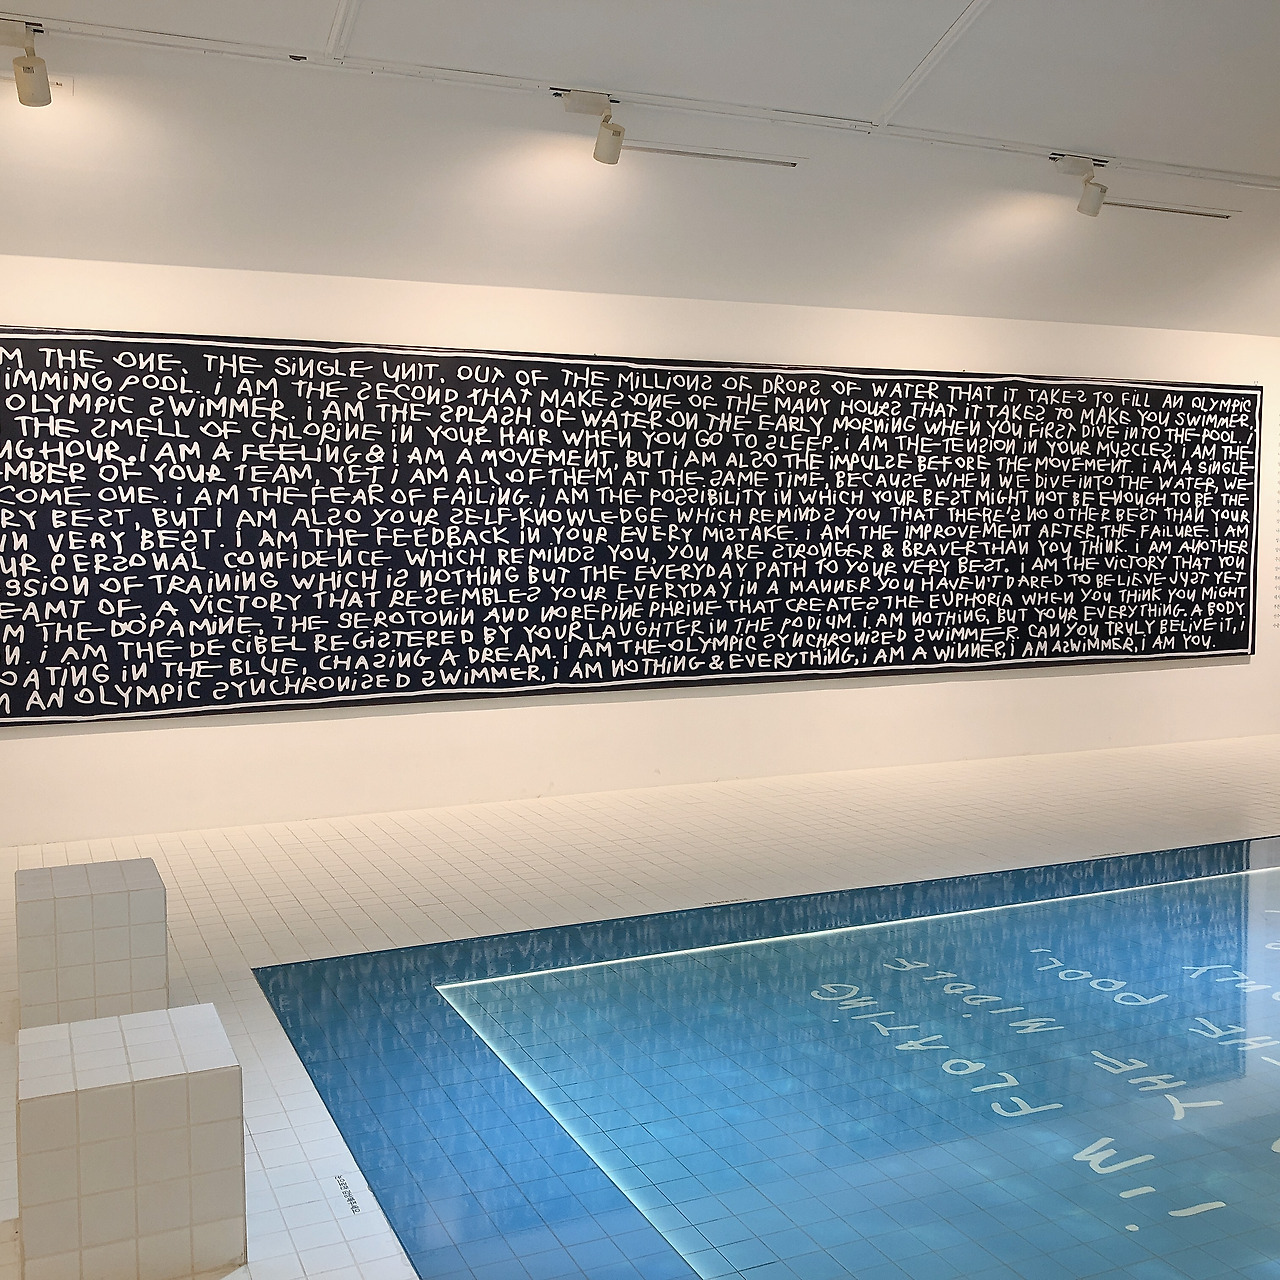 M THE ONE. THE SINGLE UNIT. OUT OF THE MILLIONS OF DROPS OF WATER THAT IT TAKES TO FILL AN OLYMPIC
IMMING POOL. i AM THE SECOND THAT MAKES ONE OF THE MANY HOURS THAT IT TAKES TO MAKE YOU SWIMMER,
OLYMPIC SWIMMER. i AM THE SPLASH OF WATER ON THE EARLY MORNING WHEN YOU FIRST DIVE INTO THE POOL. i
THE SMELL OF CHLORINE IN YOUR HAIR WHEN YOU GO TO SLEEP. i AM THE TENSION IN YOUR MUSCLES. i AM THE
NG HOUR. i AM A FEELING & i AM A MOVEMENT, BUT i AM ALSO THE IMPULSE BEFORE THE MOVEMENT. i AM A SINGLE
MBER OF YOUR TEAM, YET i AM ALL OF THEM AT THE SAME TIME, BECAUSE WHEN WE DIVE INTO THE WATER, WE
COME ONE. i AM THE FEAR OF FAILING. i AM THE POSSIBILITY IN WHICH YOUR BEST MIGHT NOT BE ENOUGH TO BE THE
RY BEST, BUT I AM ALSO YOUR SELF-KNOWLEDGE WHICH REMINDS YOU THAT THERE'S NO OTHER BEST THAN YOUR
WN VERY BEST. I AM THE FEEDBACK IN YOUR EVERY MISTAKE. i AM THE IMPROVEMENT AFTER THE FAILURE. i AM
UR PERSONAL CONFIDENCE WHICH REMINDS YOU, YOU ARE STRONGER & BRAVER THAN YOU THINK. i AM ANOTHER
SSION OF TRAINING WHICH IS NOTHING BUT THE EVERYDAY PATH TO YOUR VERY BEST. i AM THE VICTORY THAT YOU
EAMT OF. A VICTORY THAT RESEMBLES YOUR EVERYDAY IN A MANNER YOU HAVEN'T DARED TO BELIEVE JUST YET
M THE DOPAMINE, THE SEROTONIN AND NOREPINEPHRINE THAT CREATES THE EUPHORIA WHEN YOU THINK YOU MIGHT
N. i AM THE DECIBEL REGISTERED BY YOUR LAUGHTER IN THE PODIUM. i AM NOTHING, BUT YOUR EVERYTHING. A BODY
OATING IN THE BLUE, CHASING A DREAM. I AM THE OLYMPIC SYNCHRONISED SWIMMER. CAN YOU TRULY BELIVE IT, i
AN OLYMPIC SYNCHRONISED SWIMMER, i AM NOTHING & EVERYTHING, i AM A WINNER, i AM A SWIMMER, i AM YOU.
I'M FLOATING
THE MIDDLE
THE POOL,
ONLY